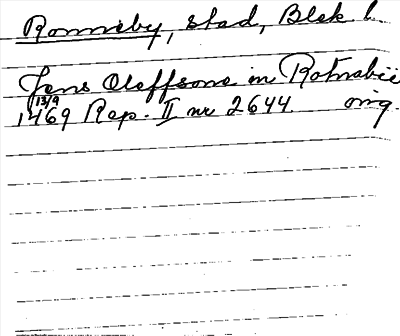 Ronneby, stad, Blek l.
Jens Oleffsons in Rotnabii
13/9
1469 Rep. II nr 2644 orig.